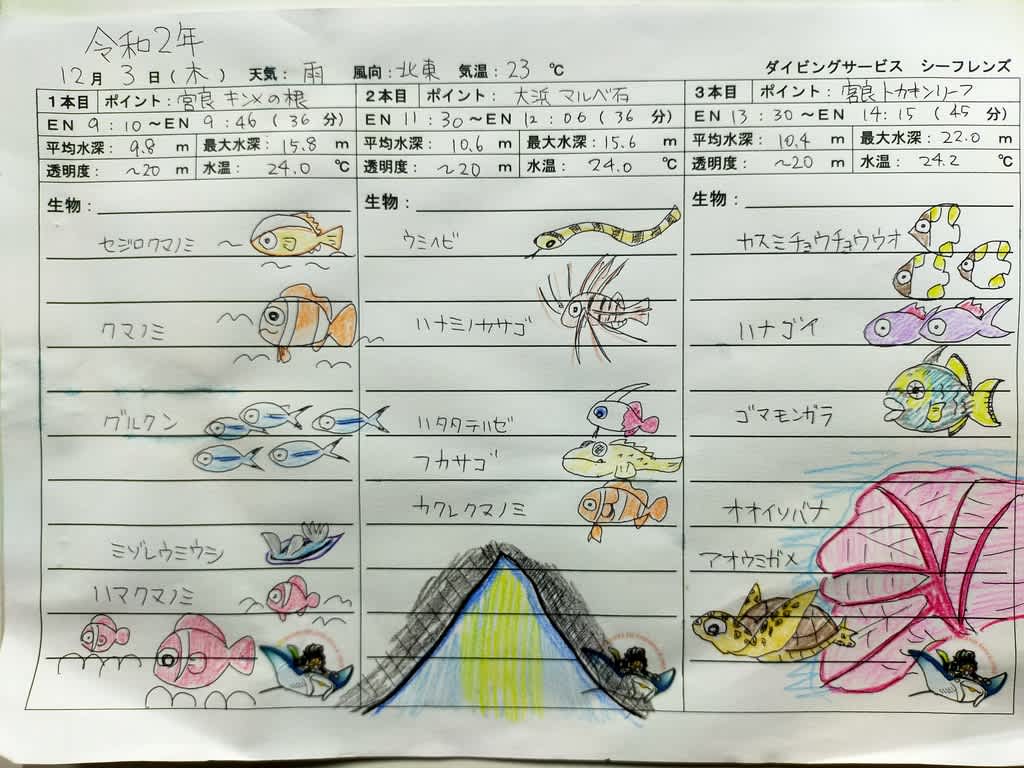 令和2年
12月 3日(木) 天気: 雨 風向: 北東 気温: 23 ℃ ダイビングサービス シーフレンズ
1本目 ポイント: 宮良 キンメの根
EN 9:10~EN 9:46 (36 分)
平均水深: 9.8 m 最大水深: 15.8 m
透明度: ~20 m 水温: 24.0 ℃
生物:
セジロクマノミ
クマノミ
グルクン
ミゾレウミウシ
ハマクマノミ
2本目 ポイント: 大浜 マルベ石
EN 11:30~EN 12:06 (36 分)
平均水深: 10.6 m 最大水深: 15.6 m
透明度: ~20 m 水温: 24.0 ℃
生物:
ウミヘビ
ハナミノカサゴ
ハタタテハゼ
フカサゴ
カクレクマノミ
3本目 ポイント: 宮良 トカキンリーフ
EN 13:30~EN 14:15 (45 分)
平均水深: 10.4 m 最大水深: 22.0 m
透明度: ~20 m 水温: 24.2 ℃
生物:
カスミチョウチョウウオ
ハナゴイ
ゴマモンガラ
オオイソバナ
アオウミガメ